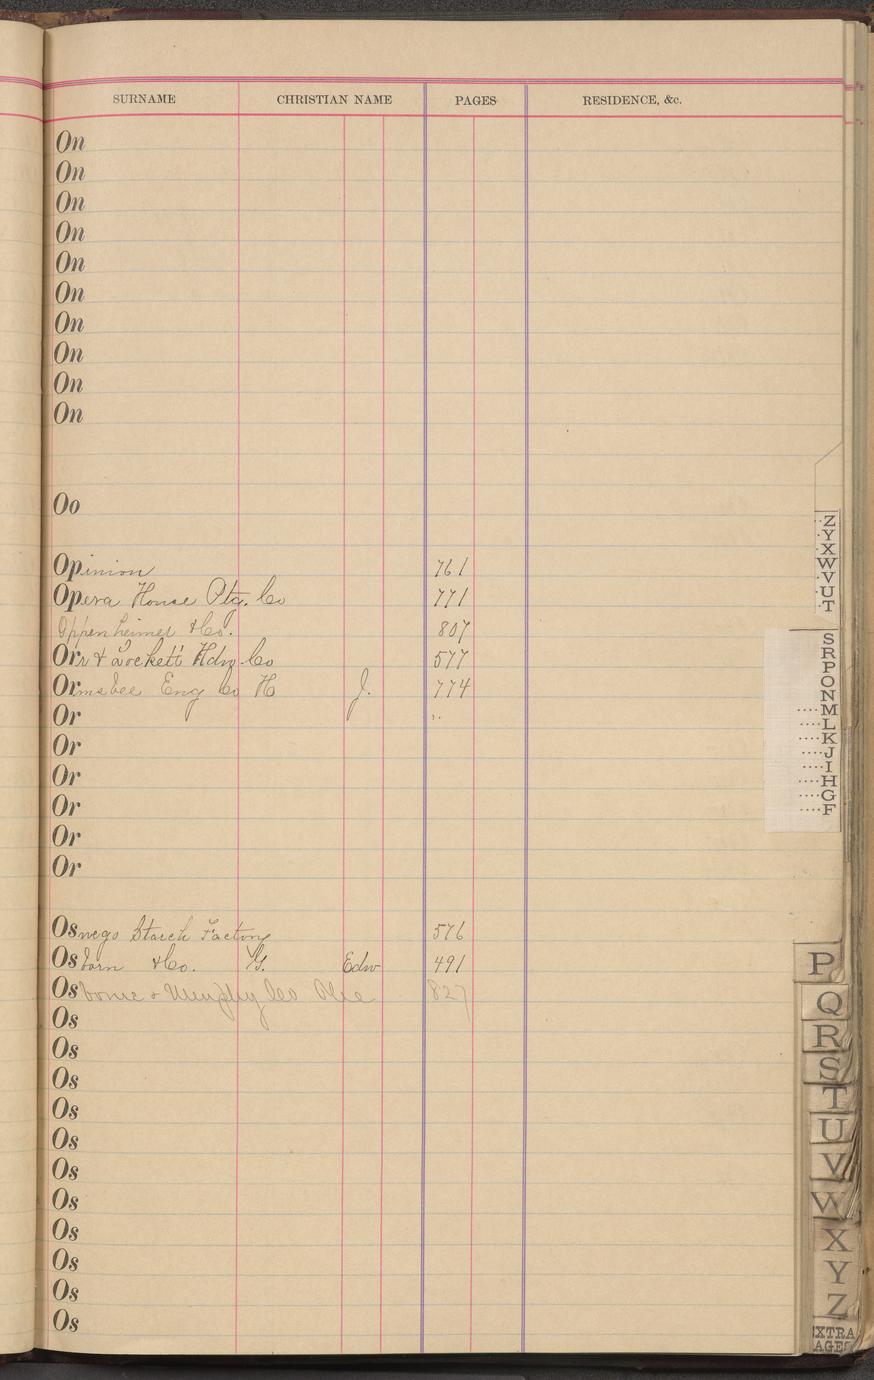 SURNAME CHRISTIAN NAME PAGES RESIDENCE, &c.
On
On
On
On
On
On
On
On
On
On
Oo
Opinion 761
Opera House Ptg. Co 771
Oppenheimer & Co. 807
Orr & Lockett Hdw Co 577
Ormsbee Eng Co H J. 774
Or
Or
Or
Or
Or
Or
Oswego Starch Factory 576
Osborn & Co. G. Edw 491
Osborne & Murphy Co 827
Os
Os
Os
Os
Os
Os
Os
Os
Os
Os
Os
Z
Y
X
W
V
U
T
S
R
P
O
N
M
L
K
J
I
H
G
F
P
Q
R
S
T
U
V
W
X
Y
Z
EXTRA
PAGES